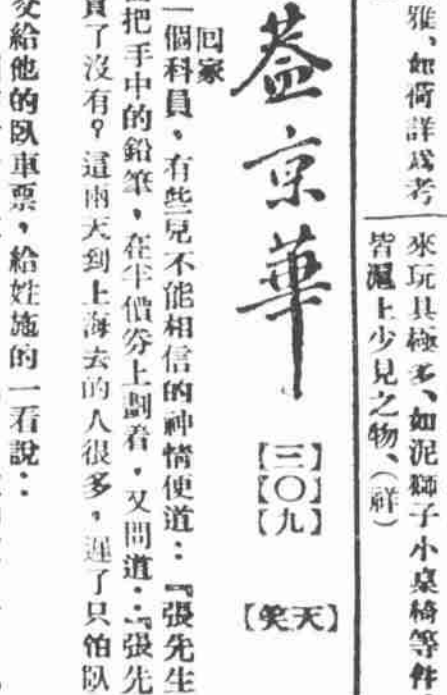 雅、如荷詳為考
來玩具極多、如泥獅子小桌椅等件
皆滬上少見之物、(祥)
蓋京華
【三〇九】
【天笑】
回家
一個科員、有些兒不能相信的神情便道:『張先生
把手中的鉛筆、在半價券上劃着、又問道:『張先
買了沒有?這兩天到上海去的人很多、遲了只怕臥
交給他的臥車票、給姓施的一看說: